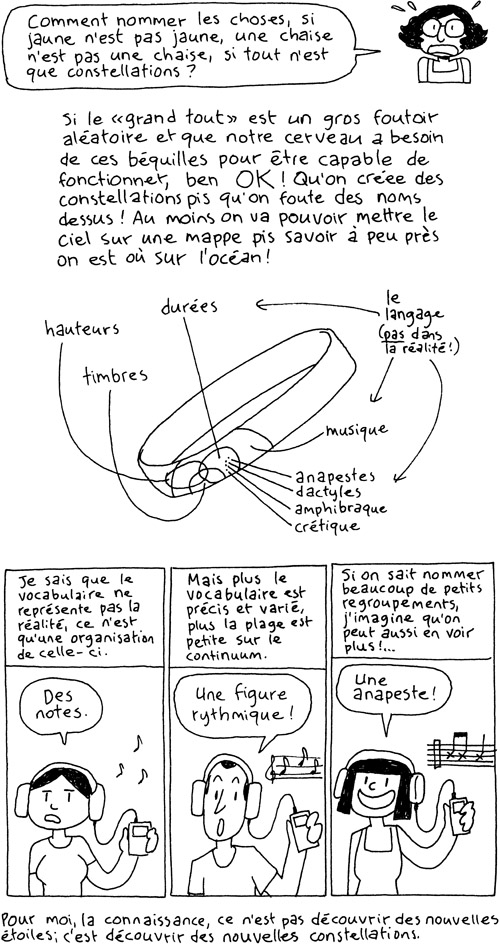 Comment nommer les choses, si
jaune n'est pas jaune, une chaise
n'est pas une chaise, si tout n'est
que constellations ?
Si le «grand tout» est un gros foutoir
aléatoire et que notre cerveau a besoin
de ces béquilles pour être capable de
fonctionner, ben OK! Qu'on créee des
constellations pis qu'on foute des noms
dessus! Au moins on va pouvoir mettre le
ciel sur une mappe pis savoir à peu près
on est où sur l'océan!
durées
le
langage
(pas dans
la réalité!)
hauteurs
timbres
musique
anapestes
dactyles
amphibraque
crétique
Je sais que le
vocabulaire ne
représente pas la
réalité, ce n'est
qu'une organisation
de celle-ci.
Des
notes.
Mais plus le
vocabulaire est
précis et varié,
plus la plage est
petite sur le
continuum.
Une figure
rythmique!
Si on sait nommer
beaucoup de petits
regroupements,
j'imagine qu'on
peut aussi en voir
plus!...
Une
anapeste!
Pour moi, la connaissance, ce n'est pas découvrir des nouvelles
étoiles; c'est découvrir des nouvelles constellations.